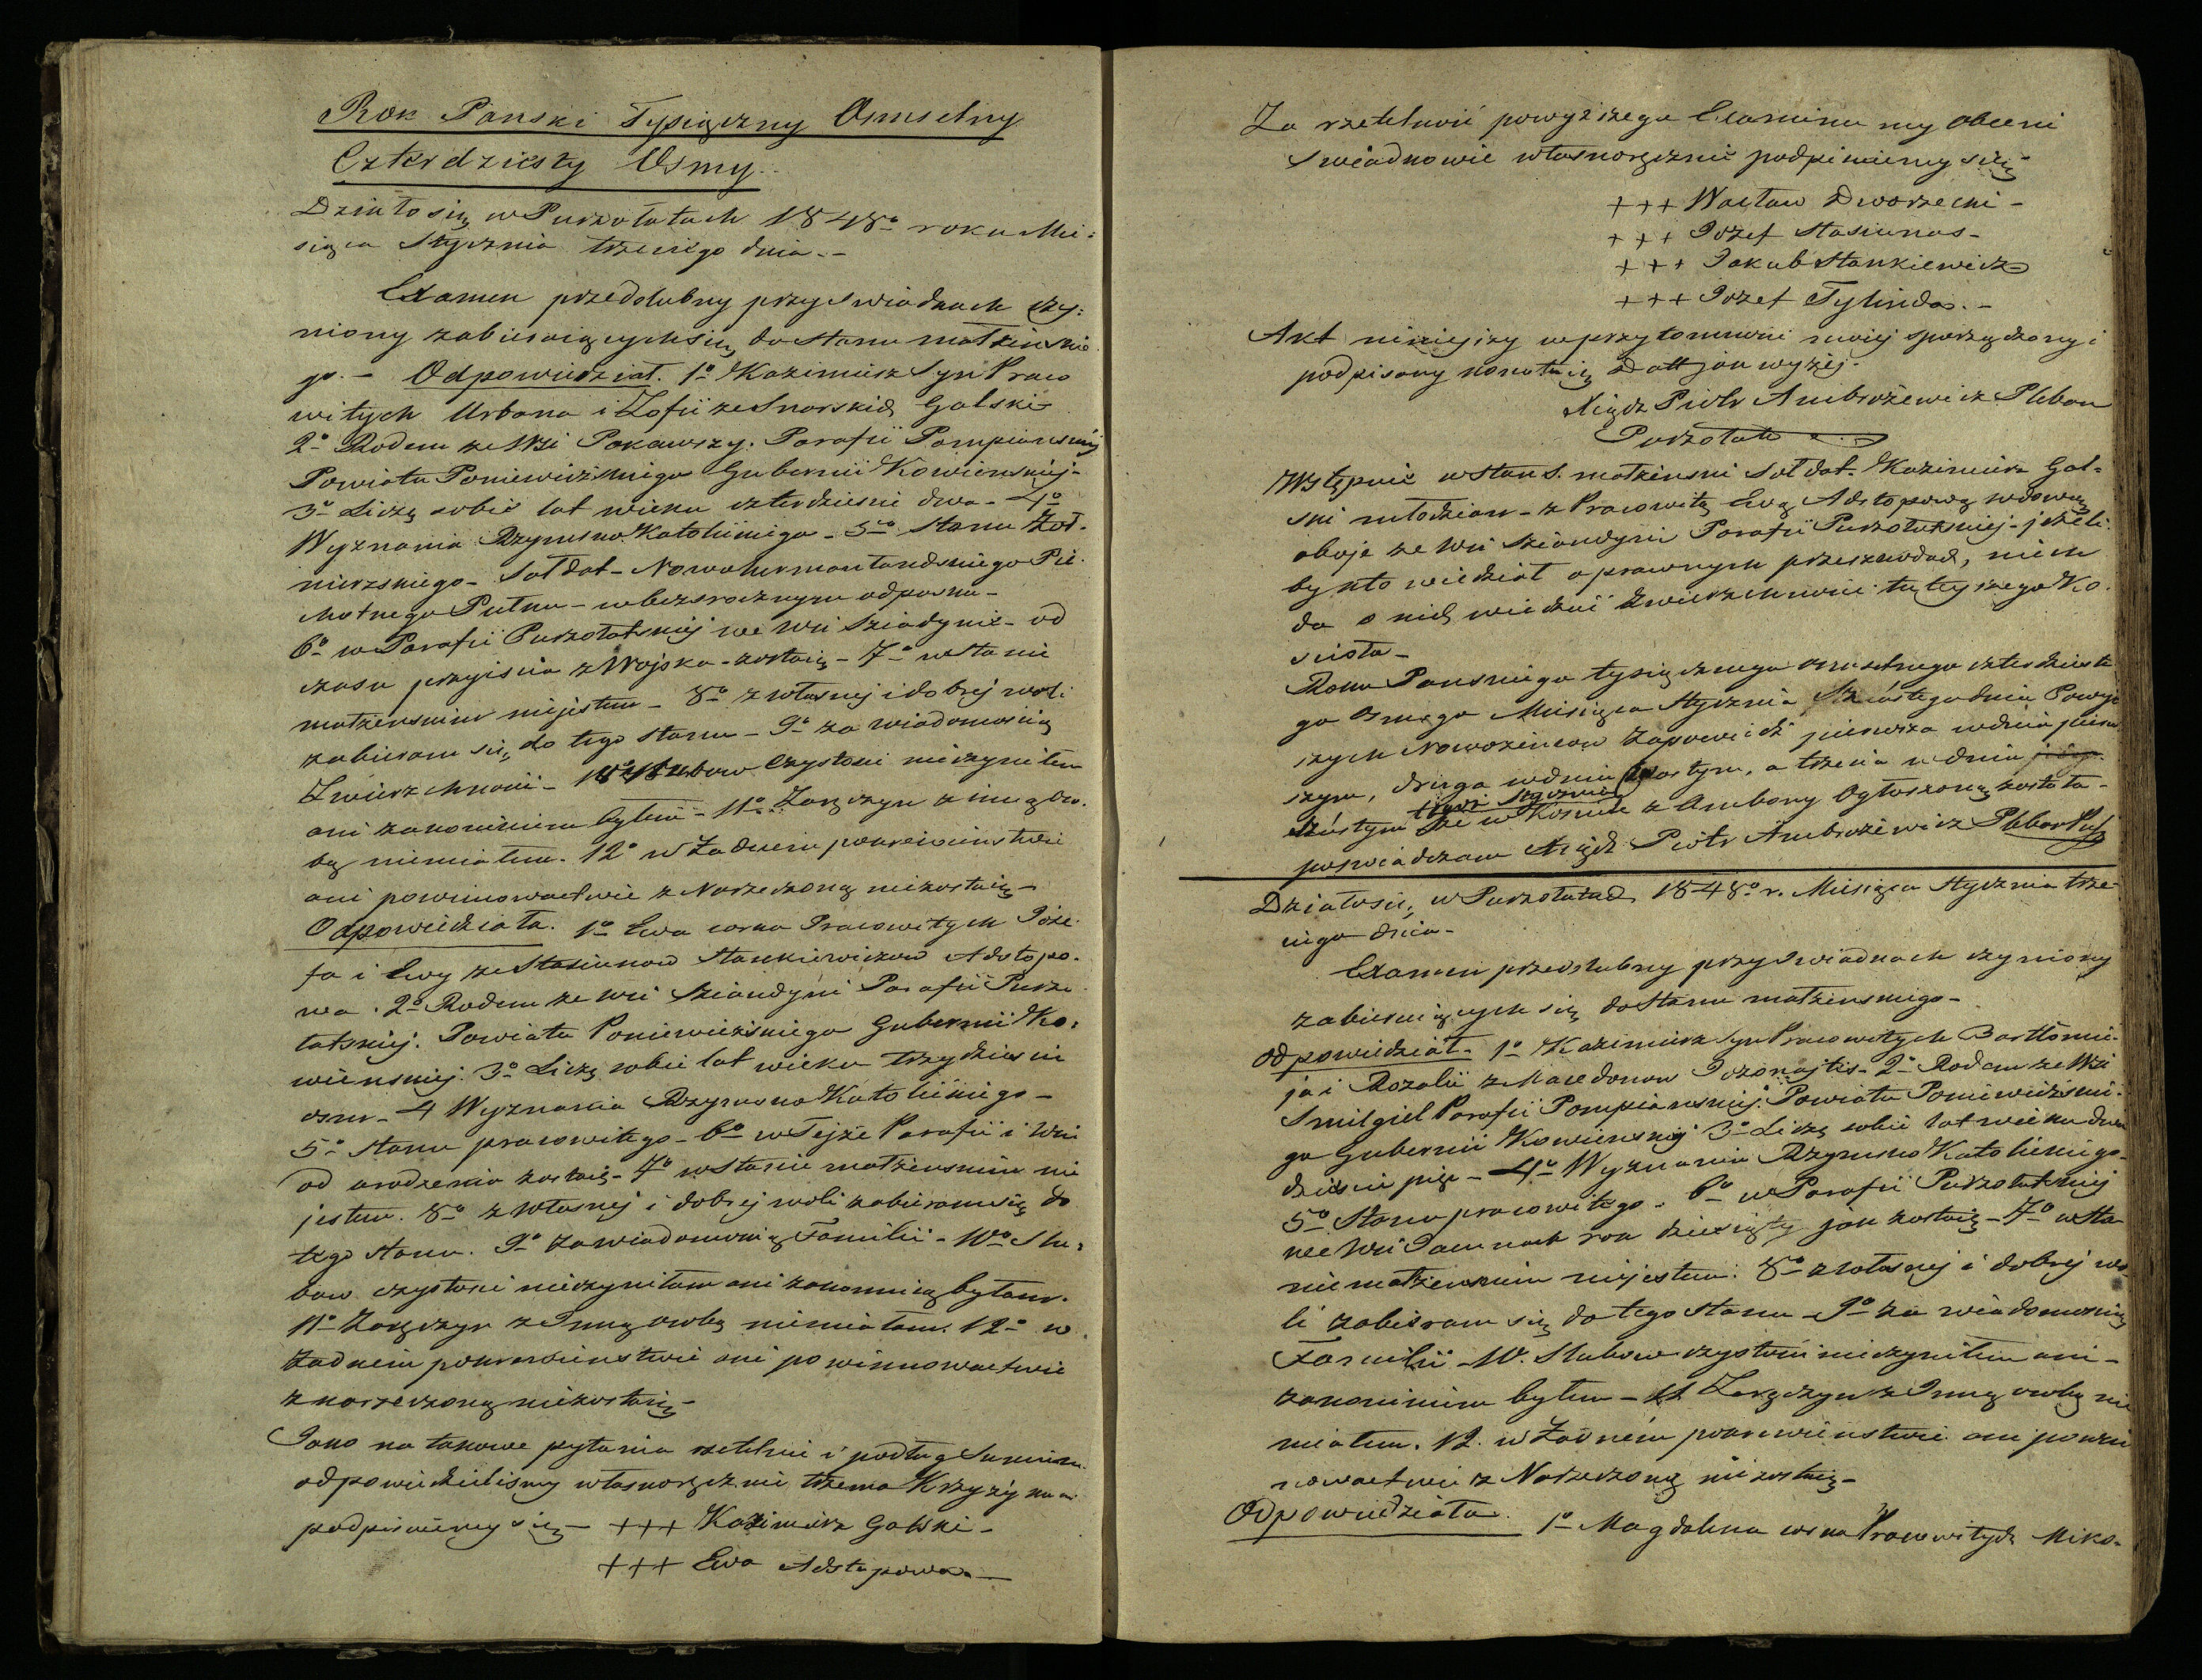 Rok Panski Tysiączny Osmsetny
Czterdziesty Osmy.
Działo się w Puszołatach 1848o roku Mie=
siąca Stycznia trzeciego dnia. -
Examen przedslubny przy Swiadkach czy=
niony zabieraiących się do stanu małżenskie
go. - Odpowiedział. 1o Kazimierz Syn Praco
witych Urbana i Zofii ze Snarskich Galski-
2o Rodem ze Wsi Pokawszy. Parafii Pompianskiej
Powiatu Poniewiezskiego Gubernii Kowienskiej-
3o Liczę sobie lat wieku czterdziesci dwa - 4o
Wyznania Rzymsko Katolickiego - 5o Stanu Żoł-
nierzskiego - Sołdat - Nowoin­germanlandskiego Pie
chotnego Pułku - w bezsrocznym odpusku -
6o w Parafii Puszołatskiej we Wsi Sziadynie - od
czasu przyiscia z Wojska - zostaię - 7o w stanie
małzenskim niejestem - 8o z własnej i dobrej woli
zabieram się do tego stanu - 9o za wiadomoscią
Zwierzchnosci - 10o Slubow Czystosci nieczyniłem
ani zakonnikiem byłem - 11o Zaręczyn z inną oso.
bą niemiałem. 12o w Żadnem pokrewienstwie
ani powinowactwie z Narzeczoną niezostaię -
Odpowiedziała. 1o Ewa corka Pracowitych Joze
fa i Ewy ze Stasiunow Stankiewiczow Adstopo.
wa. 2o Rodem ze Wsi Sziaudyni Parafii Puszo
łatskiej. Powiatu Poniewiezskiego Gubernii Ko=
wienskiej. 3o Liczę sobie lat wieku trzydziesci
osm - 4 Wyznania Rzymsko Katolickiego -
5o Stanu pracowitego - 6o w Tejże Parafii i Wsi
od urodzenia zostaię - 7o w stanie małżenskim nie
jestem. 8o z własnej i dobrej woli zabieram się do
tego stanu. 9o za wiadomoscią Familii - 10o Slu=
bow czystosci nieczyniłam ani zakonnicą byłam.
11o Zaręczyn z Inną osobą niemiałam. 12o w
Żadnem pokrewienstwie ani powinnowactwie
z narzeczoną niezostaię -
Jako na takowe pytania rzetelnie i podług Sumien.
odpowiedzielismy własnoręcznie trzema Krzyżykami
podpisuiemy się - +++ Kazimierz Galski -
+++ Ewa Adstopowa. -
Za rzetelność powyższego Examinu my obecni
Swiadkowie własnoręcznie podpisuiemy się -
+++ Wacław Dworzecki -
+++ Jozef Stasiunas -
+++ Jakub Stankiewicz -
+++ Jozef Tylinda. -
Akt niniejszy w przytomności mojej sporządzony i
podpisany konotuię Datt jak wyżej.
Xiądz Piotr Ambrożewicz Pleban
Puszołats
Wstępuie w Stan S. małżenski Sołdat Kazimierz Gal=
ski młodzian - z Pracowitą Ewą Adstopową wdową
oboje ze Wsi Sziaudyni Parafii Puszołatskiej - jeżeli
by kto wiedział o prawnych przeszkodach, niech
da o nich wiedzieć Zwierzchnosci tuteyszego Ko.
scioła -
Roku Panskiego tysiącznego osmsetnego czterdzieste
go Osmego Miesiąca Stycznia Szóstego dnia Powyż
szych Nowożencow Zapowiedź pierwsza w dniu pierw
szym, druga w dniu szostym, a trzecia w dniu
szóstym tegoż Stycznia w Kosciele z Ambony Ogłoszoną została -
poswiadczam Xiądz Piotr Ambrożewicz Pleban Pusz
Działo się w Puszołatach 1848o r. Miesiąca Stycznia trze
ciego dnia -
Examen przedslubny przy Swiadkach czyniony
zabieraiących się do stanu małżenskiego -
Odpowiedział - 1o Kazimierz Syn Pracowitych Bartłomie-
ja i Rozalii z Macedonow Jozonajtis - 2o Rodem ze Wsi
Smilgiel Parafii Pompianskiej Powiatu Poniewiezskie-
go Gubernii Kowienskiej 3o Liczę sobie lat wieku dwa
dziescie pięć - 4o Wyznania Rzymsko Katolickiego -
5o Stanu pracowitego - 6o w Parafii Puszołatskiej
we Wsi rok dziesiąty jak zostaię - 7o w sta
nie małżenskim niejestem. 8o z własnej i dobrej wo
li zabieram się do tego stanu - 9o za wiadomoscią
Familii - 10. Slubow czystości nieczyniłem ani -
zakonnikiem byłem - 11 Zaręczyn z Inną osobą nie
miałem. 12. w Żadném pokrewienstwie ani powin
nowactwie z Narzeczoną nie zostaię -
Odpowiedziała. 1o Magdalena corka Pracowitych Miko-